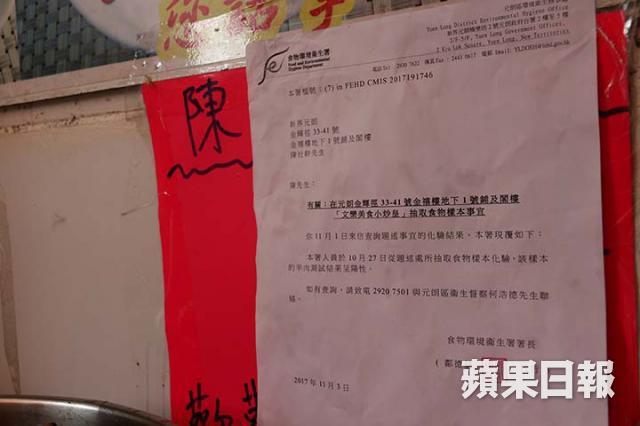 您
陳
食物環境衞生署
Food and Environmental
Hygiene Department
元朗區環境衞生辦事處
Yuen Long District Environmental Hygiene Office
2/F-5/F, Yuen Long Government Offices,
2 Kiu Lok Square, Yuen Long, New Territories
本署檔號：(7) in FEHD CMIS 2017191746
新界元朗
金輝徑 33-41 號
金禧樓地下 1 號舖及閣樓
陳先生：
有關：在元朗金輝徑 33-41 號金禧樓地下 1 號舖及閣樓
「文樂美食小炒皇」抽取食物樣本事宜
你 11 月 1 日來信查詢題述事宜的化驗結果。本署現覆如下：
本署人員於 10 月 27 日從題述處所抽取食物樣本化驗，該樣
本的羊肉測試結果呈陽性。
如有查詢，請致電 2920 7501 與元朗區衞生督察何浩德先生聯
絡。
食物環境衞生署署長
2017 年 11 月 3 日
蘋果日報